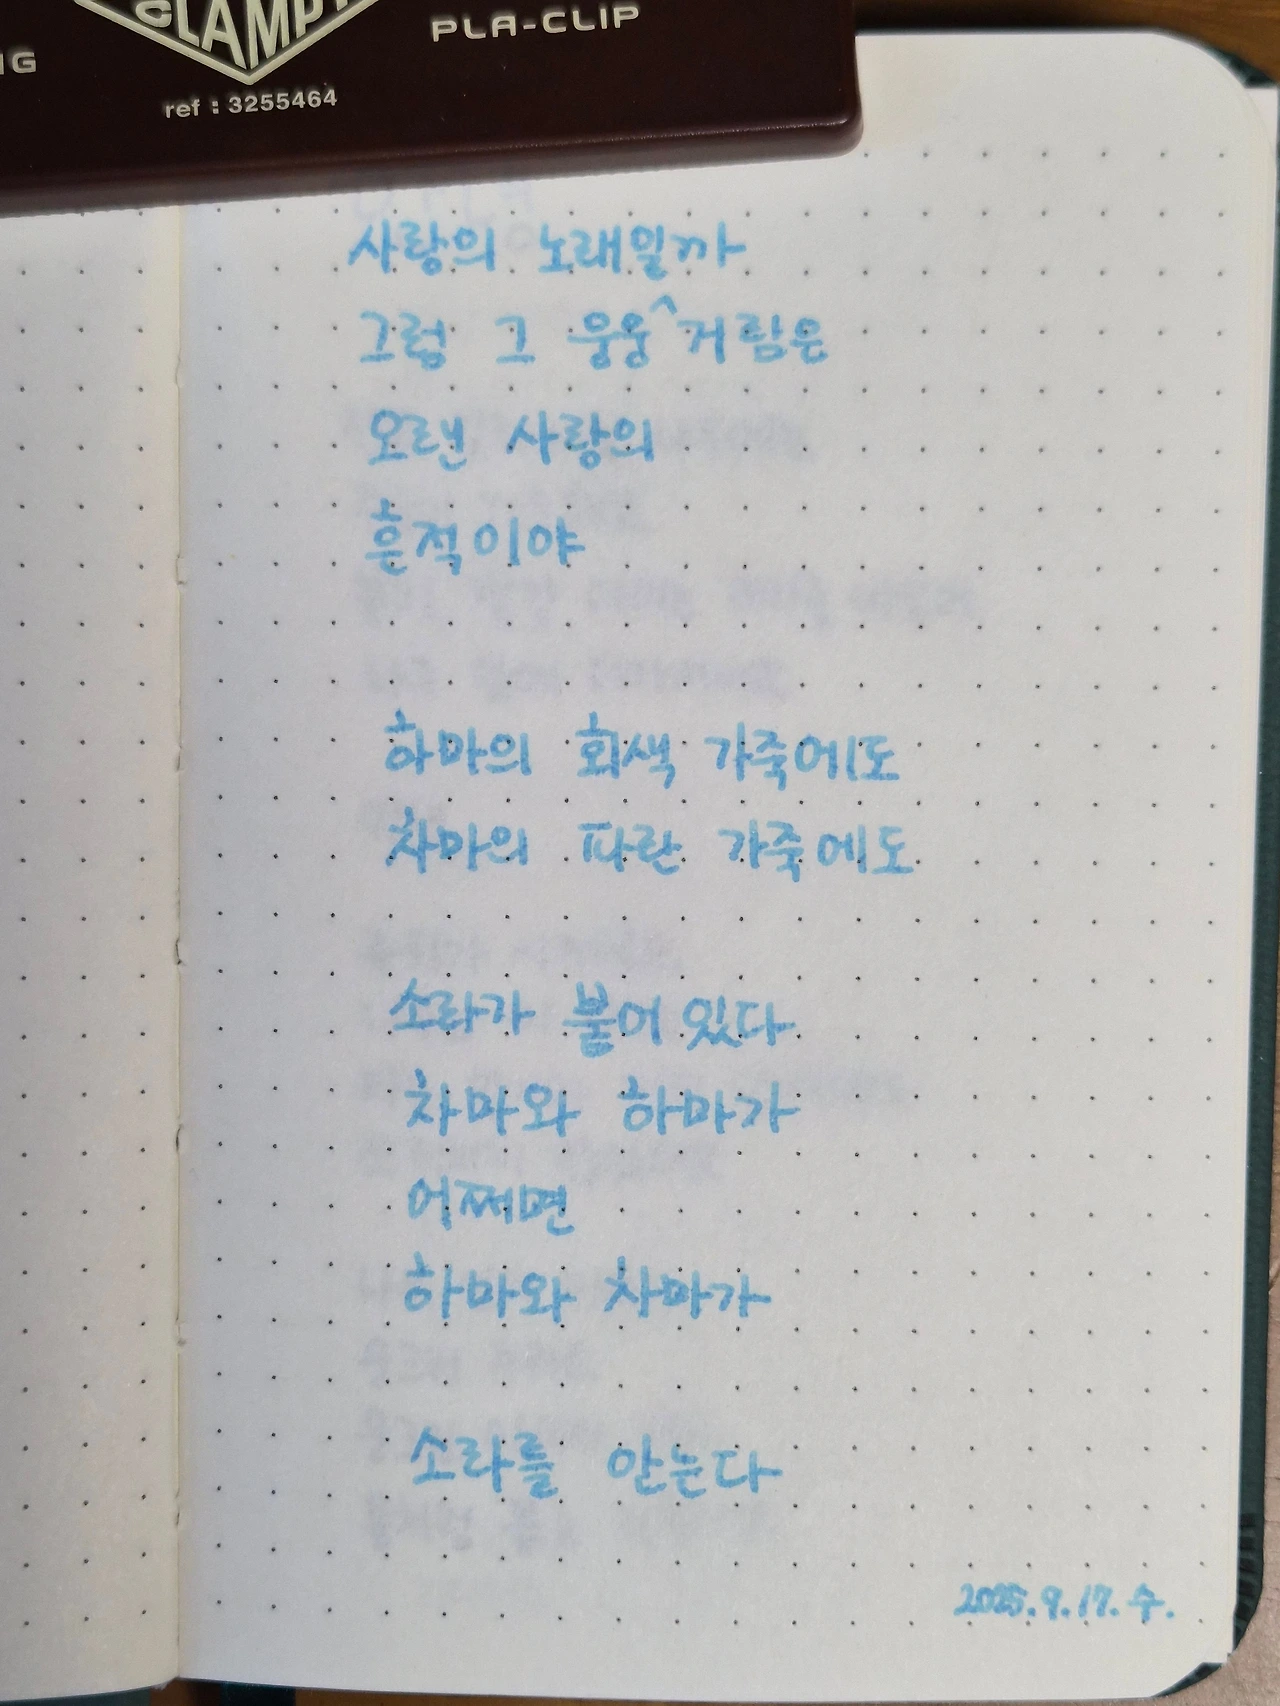 CLAMPY
PLA-CLIP
NG
ref : 3255464
사랑의 노래일까
그럼 그 웅웅^거림은
오랜 사랑의
흔적이야
하마의 회색 가죽에도
차마의 파란 가죽에도
소라가 붙어 있다
차마와 하마가
어쩌면
하마와 차마가
소라를 안는다
2025.9.17.수.